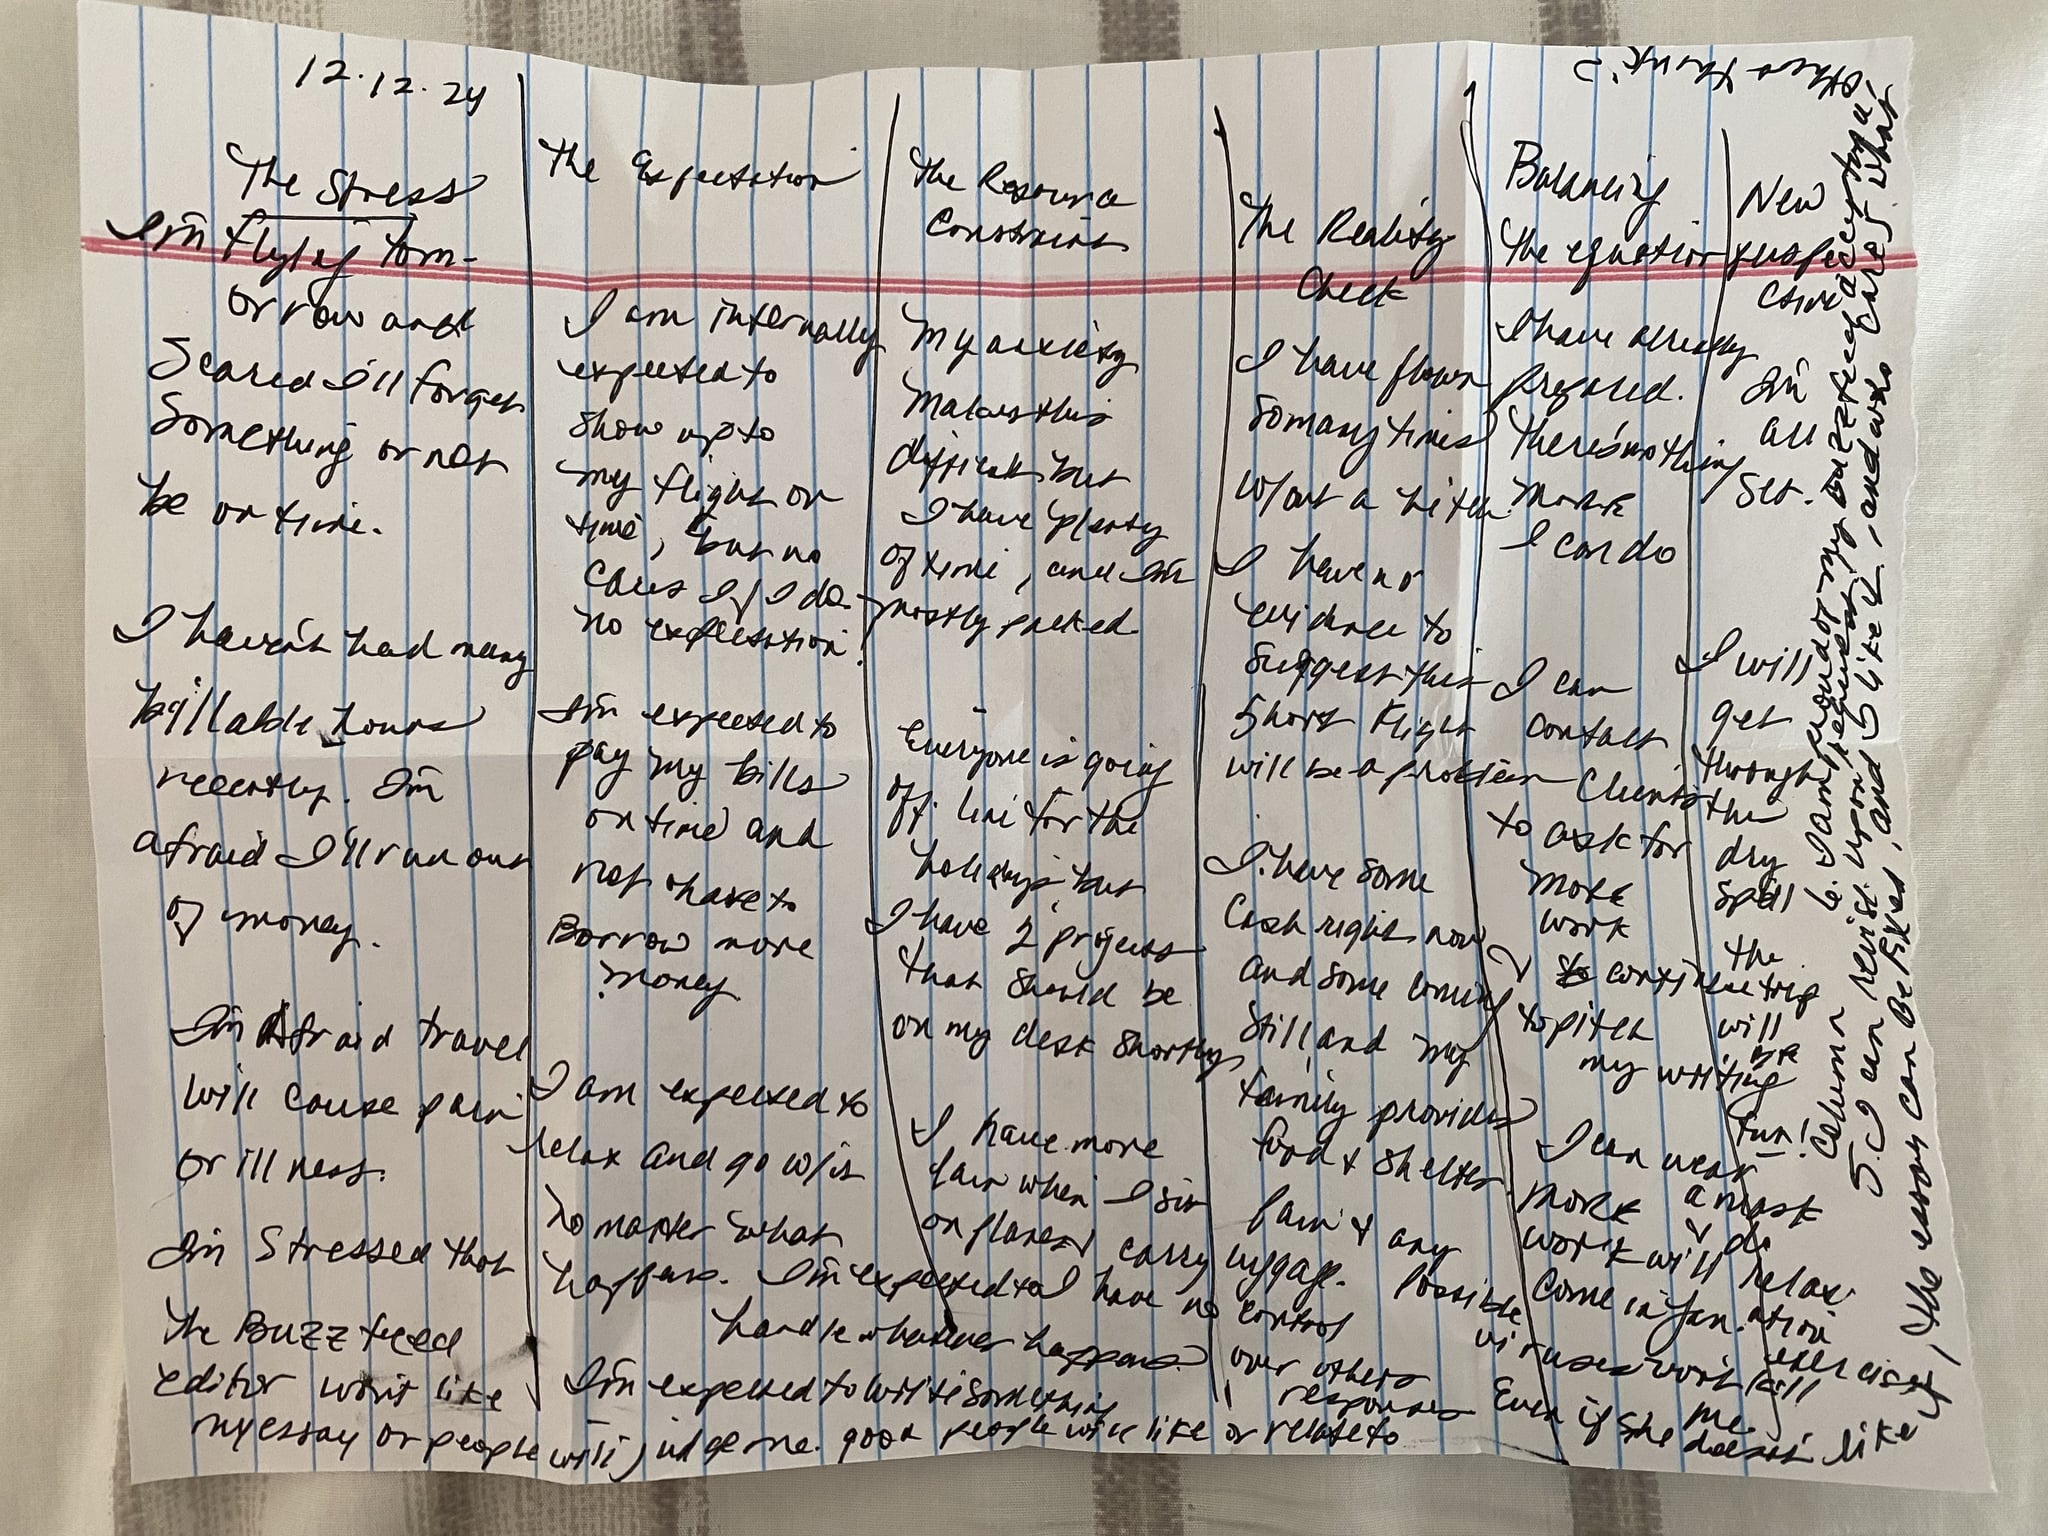 12.12.24
The Stress
I'm flying tom-
orrow and
scared I'll forget
something or not
be on time.
I haven't had many
billable hours
recently. I'm
afraid I'll run out
of money.
I'm Afraid travel
will cause pain
or illness.
I'm stressed that
the Buzzfeed
editor won't like
my essay or people will judge me.
The Expectation
I am internally
expected to
show up to
my flight on
time, but no
cares if I do.
no expectation!
I'm expected to
pay my bills
on time and
not have to
Borrow more
money.
I am expected to
relax and go w/it
no matter what
happens. I'm expected to
handle whatever happens.
I'm expected to write something
good people will like or relate to
The Resource
Constraint
My anxiety
makes this
difficult but
I have plenty
of time, and I'm
mostly packed.
Everyone is going
off line for the
holidays but
I have 2 projects
that should be
on my desk shortly
I have more
pain when I sit
on planes & carry luggage.
I have no control
over others
responses
The Reality
Check
I have flown
so many times
w/out a hitch
I have no
evidence to
suggest this
short flight
will be a problem
I have some
cash right now
and some coming
still and my
family provides
food & shelter.
Pain & any
possible
viruses won't kill
me.
Even if she doesn't like it, the essay can be fixed, and I like it, and who cares what
others think?
Balancing
the equation
I have already
prepared.
There's nothing
more
I can do
I can
contact
clients
to ask for
more
work
continue
to pitch
my writing
I can wear
a mask
& do
relax-
ation
exercises
New
perspec
tive
I'm
all
set.
I will
get
through
the
dry
spell
the
trip
will
be
fun!
more
work will
come in Jan.
Column
5. I can revise upon request
6. I am proud of my buzzfeed